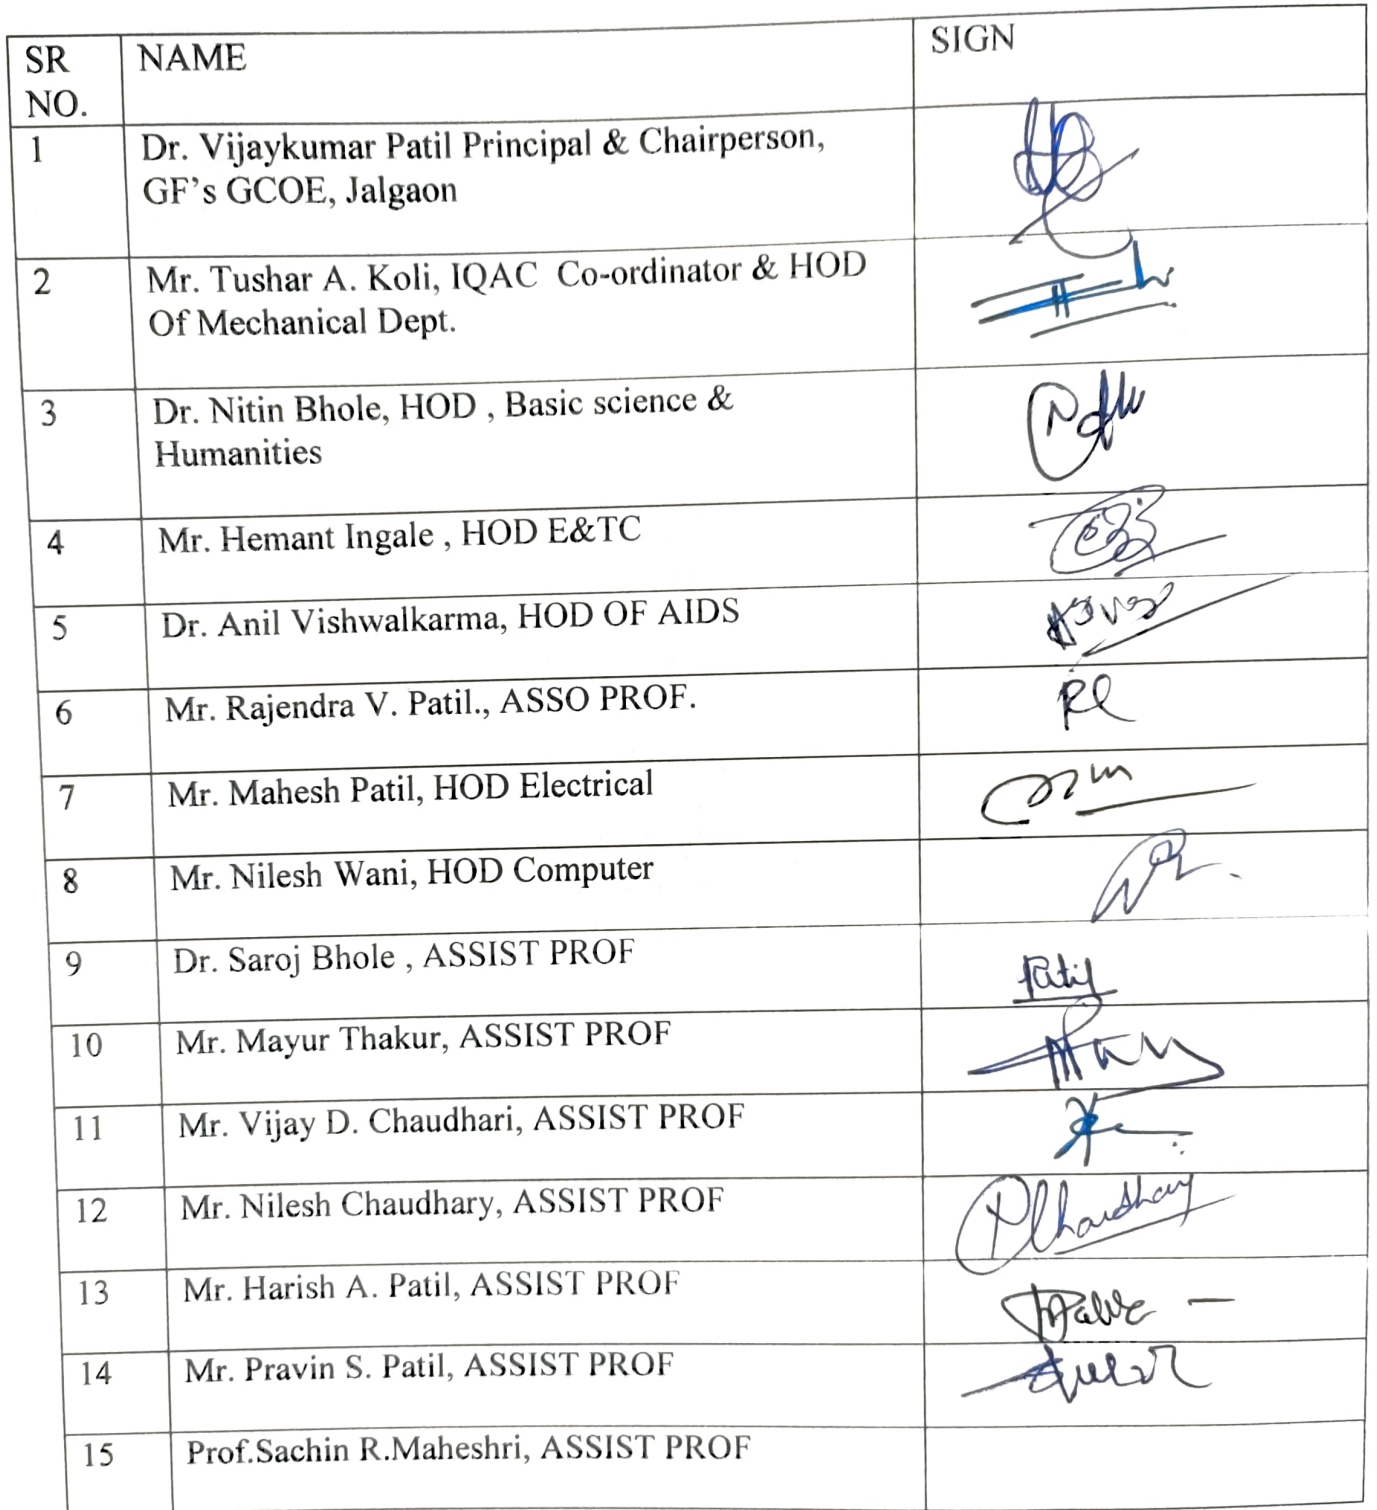 SR NO. NAME SIGN
1 Dr. Vijaykumar Patil Principal & Chairperson,
GF's GCOE, Jalgaon
2 Mr. Tushar A. Koli, IQAC Co-ordinator & HOD
Of Mechanical Dept.
3 Dr. Nitin Bhole, HOD , Basic science &
Humanities
4 Mr. Hemant Ingale , HOD E&TC
5 Dr. Anil Vishwalkarma, HOD OF AIDS
6 Mr. Rajendra V. Patil., ASSO PROF.
7 Mr. Mahesh Patil, HOD Electrical
8 Mr. Nilesh Wani, HOD Computer
9 Dr. Saroj Bhole , ASSIST PROF
10 Mr. Mayur Thakur, ASSIST PROF
11 Mr. Vijay D. Chaudhari, ASSIST PROF
12 Mr. Nilesh Chaudhary, ASSIST PROF
13 Mr. Harish A. Patil, ASSIST PROF
14 Mr. Pravin S. Patil, ASSIST PROF
15 Prof.Sachin R.Maheshri, ASSIST PROF